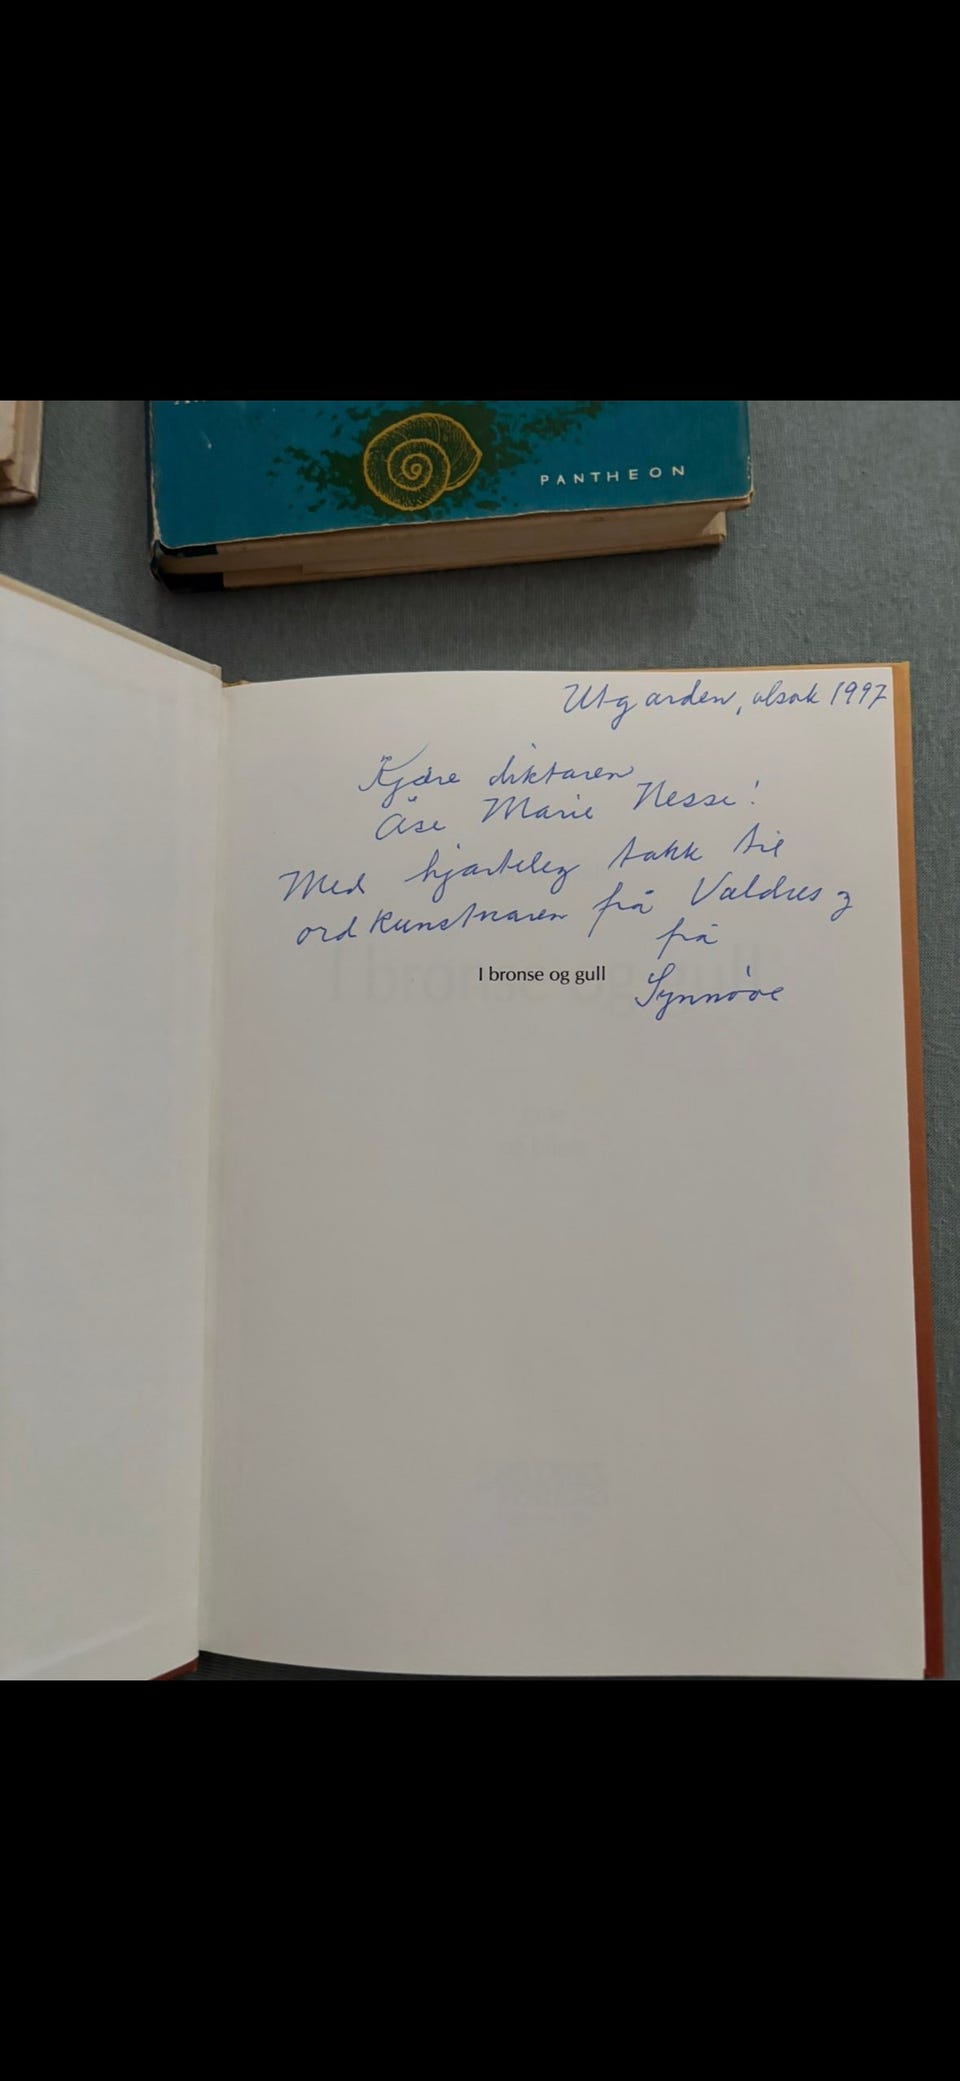 PANTHEON
Utgarden, olsok 1997
Kjære diktaren
Åse Marie Nesse!
Med hjarteleg takk til
ordkunstnaren frå Valdres og
frå
I bronse og gull
Synnøve